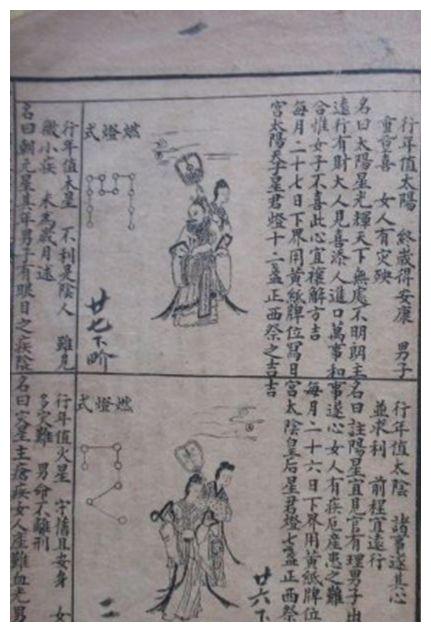 行年值太陽　終歲得安康　男子
重重喜　女人有灾殃
名曰太陽星光輝天下無處不明朗主名曰
遠行有財大人見喜添人進口萬事和
合惟女子不喜此心宜禳解方吉
每月二十七日下界用黃紙牌位寫日
宮太陽天子星君燈十二盞正西祭之吉
燃燈式
廿七下界
行年值木星　不利是陰人　雖見
微小疾　木患歲月逑
名曰朝元星其年男子有眼目之疾陰
行年值太陰　諸事遂其心
並求利　前程宜遠行
註陽星宜見官有理男子出
事遂心女人有疾厄產患之難
每月二十六日下界用黃紙牌位
宮太陰皇后星君燈七盞正西祭
吉
燃燈式
廿六下
二
行年值火星　守舊且安身　女
多灾難　男命不離刑
名曰灾星主瘡疾女人産難血光男